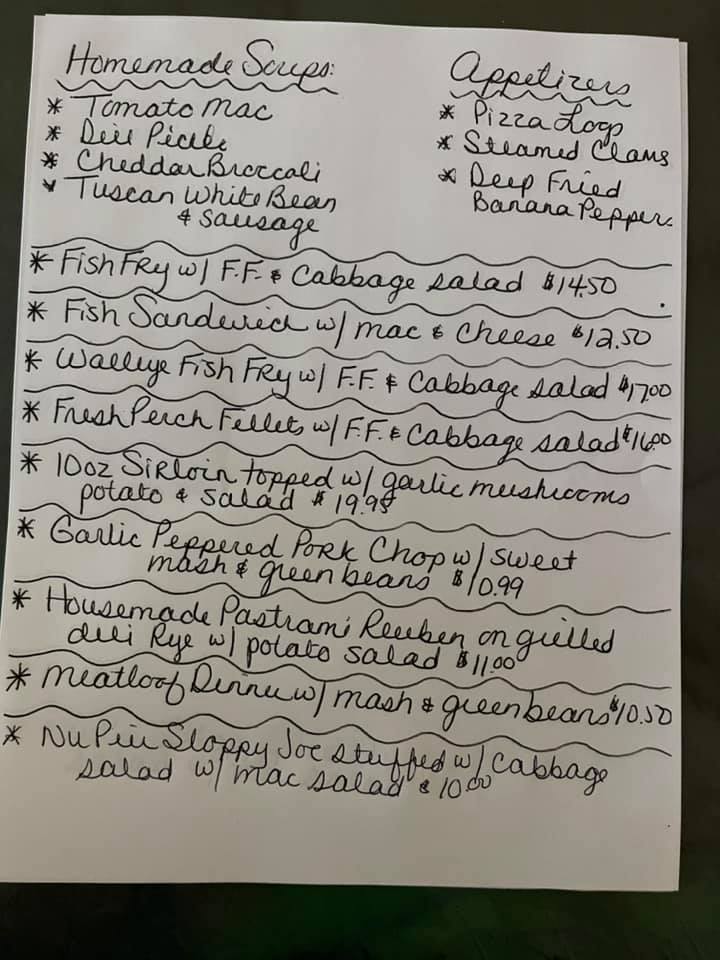 Homemade Soups:
* Tomato Mac
* Dill Pickle
* Cheddar Broccoli
* Tuscan White Bean
& sausage
Appetizers
* Pizza Logs
* Steamed Clams
* Deep Fried
Banana Peppers
* Fish Fry w/ F.F. & Cabbage salad $14.50
* Fish Sandwich w/ mac & Cheese $12.50
* Walleye Fish Fry w/ F.F. & Cabbage salad $17.00
* Fresh Perch Fellets w/ F.F. & Cabbage salad $16.00
* 10oz Sirloin topped w/ garlic mushrooms
potato & salad $19.98
* Garlic Peppered Pork Chop w/ sweet
mash & green beans $10.99
* Housemade Pastrami Reuben on grilled
deli Rye w/ potato salad $11.00
* Meatloaf Dinner w/ mash & green beans $10.50
* Sloppy Joe stuffed w/ Cabbage
salad w/ mac salad $10.00